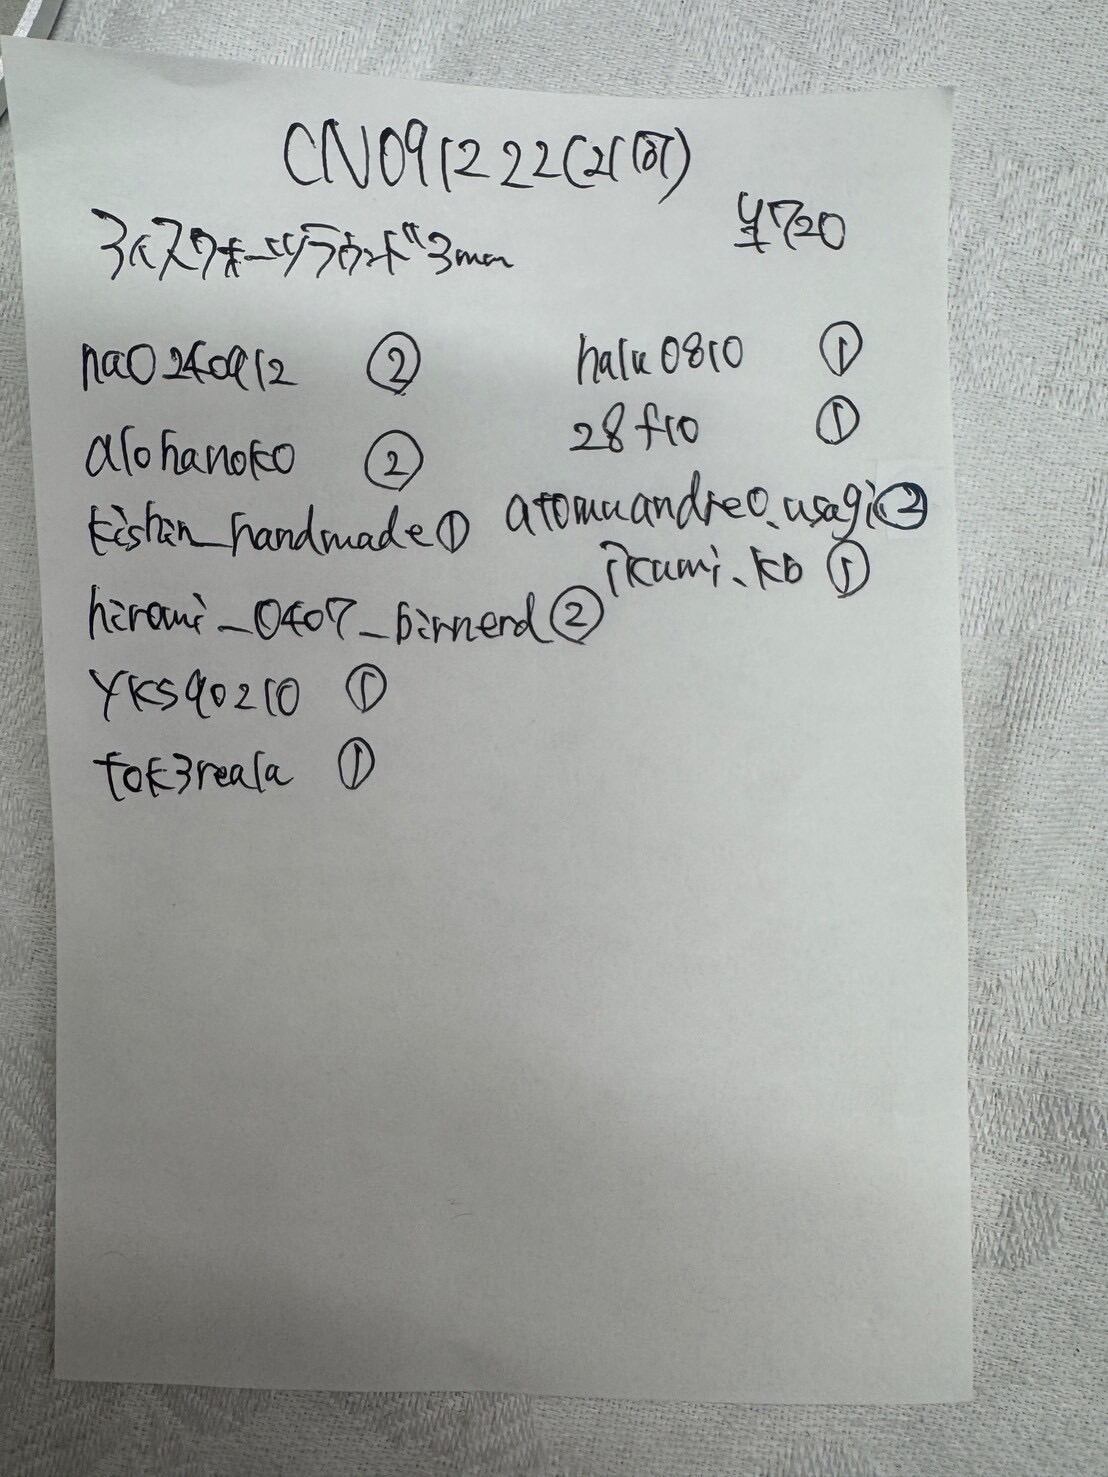 CN091222(21個)
¥720
ラウンド 3mm
nao240912 ②
alohanoko ②
kishin_handmade ①
hiromi_0407_birnerd ②
yks90210 ①
tok3reala ①
halu0810 ①
28f10 ①
atomuandreo.usagi ②
ikumi.kb ①